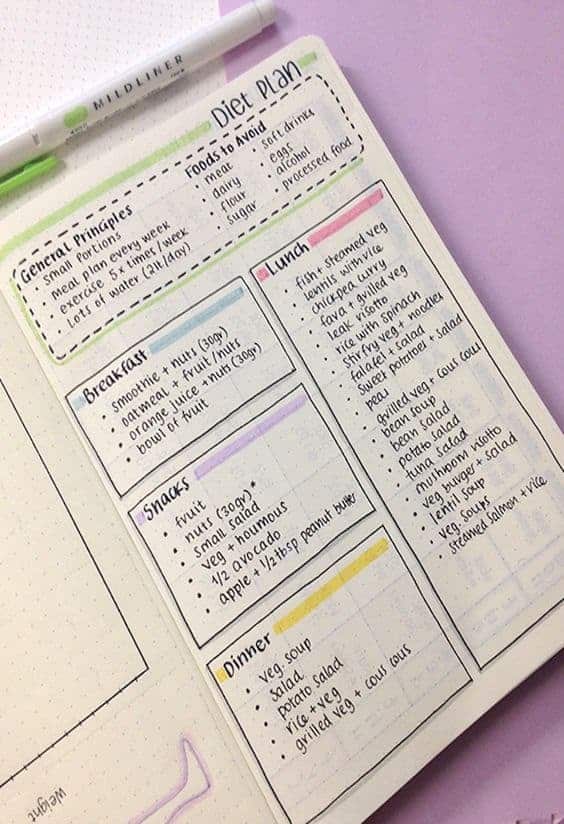 MILDLINER
Diet Plan
General Principles
• small portions
• meal plan every week
• exercise 5x times/week
• Lots of water (2lt/day)
Foods to Avoid
• meat
• dairy
• flour
• sugar
• soft drinks
• eggs
• alcohol
• processed food
Breakfast
• smoothie + nuts (30gr)
• oatmeal + fruit/nuts
• orange juice + nuts (30gr)
• bowl of fruit
Snacks
• fruit
• nuts (30gr)*
• small salad
• veg + houmous
• 1/2 avocado
• apple + 1/2 tbsp peanut butter
Dinner
• veg. soup
• salad
• potato salad
• rice + veg
• grilled veg + cous cous
Lunch
• fish + steamed veg
• lentils with rice
• chickpea curry
• fava + grilled veg
• leak risotto
• rice with spinach
• stirfry veg + noodles
• falafel + salad
• sweet potatoes + salad
• grilled veg + cous cous
• bean soup
• bean salad
• potato salad
• tuna salad
• mushroom risotto
• veg burger + salad
• lentil soup
• veg. soups
• steamed salmon + rice
Weight